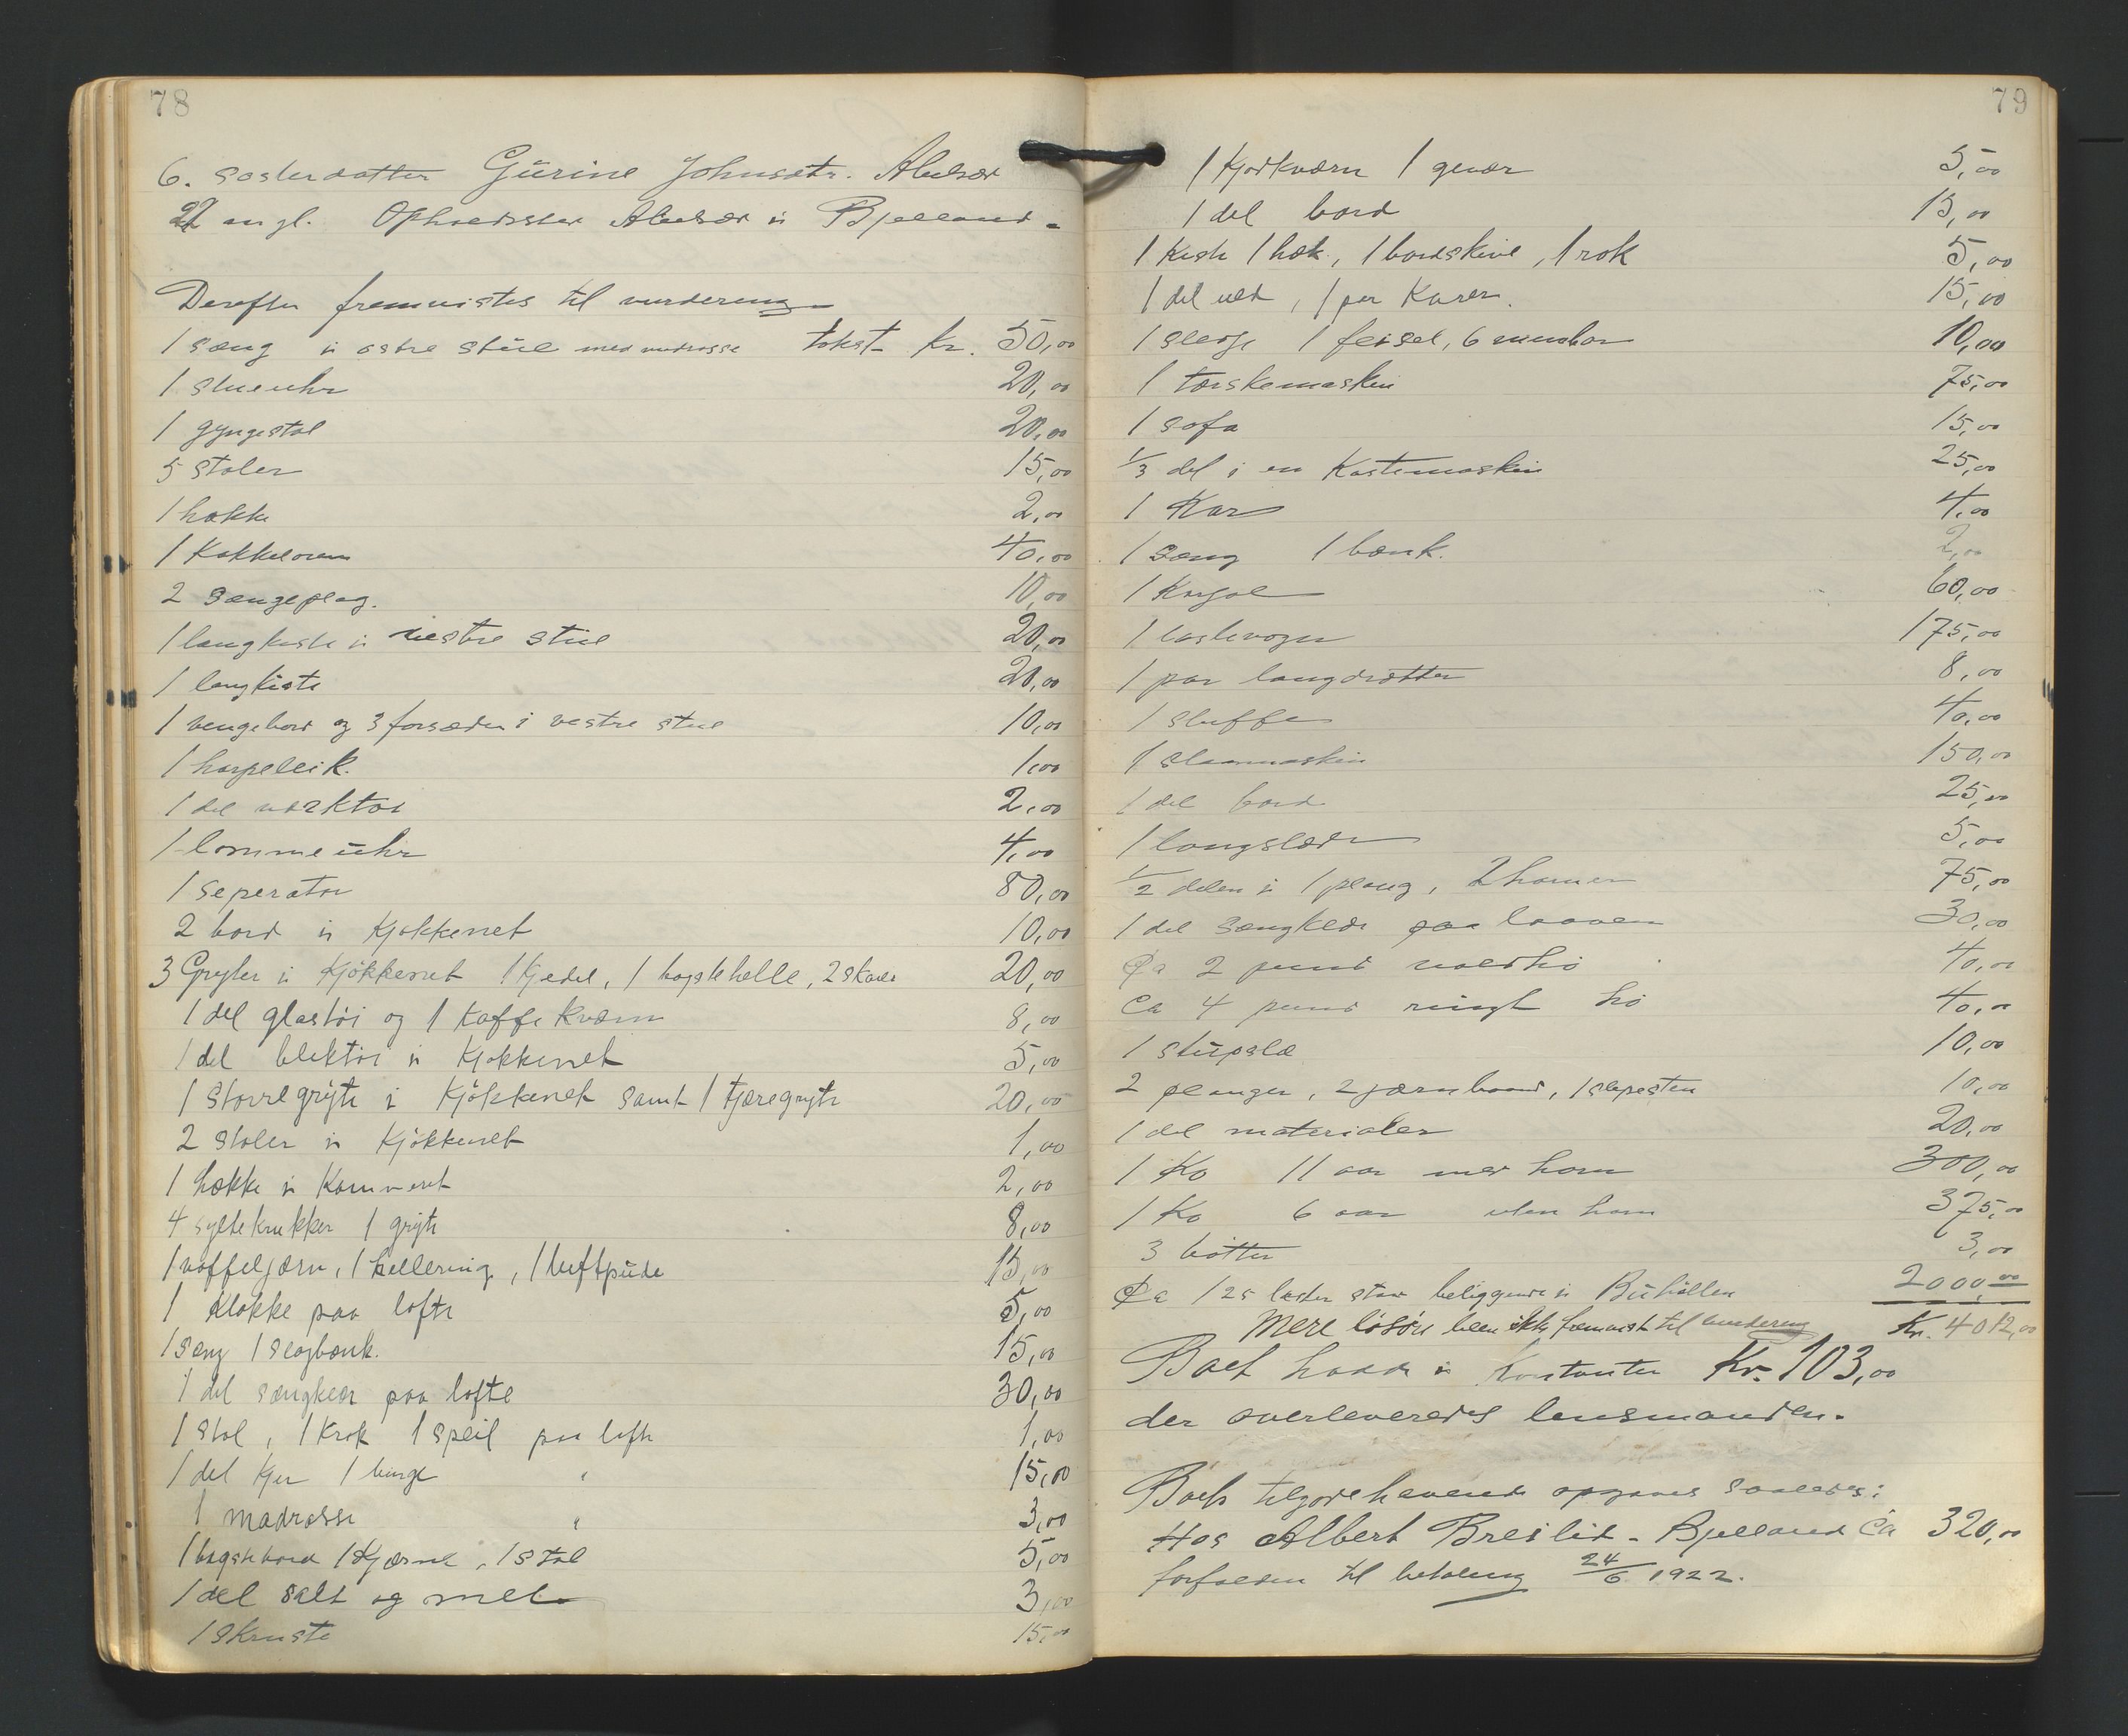 78
6. søsterdatter Gurine Johnsdtr. Abelsæt
22 aar gl. Opholdssted Abelsæt i Bjelland.
Derefter fremvistes til vurdering
1 sæng i østre stue med madrasse takst Kr. 50,00
1 stueuhr 20,00
1 gyngestol 20,00
5 stoler 15,00
1 hække 2,00
1 Kakkelovn 40,00
2 sængeplag. 10,00
1 langkiste i vestre stue 20,00
1 langkiste 20,00
1 vengebord og 3 forsæder i vestre stue 10,00
1 harpeleik. 1,00
1 del værktøi 2,00
1 lommeuhr 4,00
1 seperator 80,00
2 bord i Kjøkkenet 10,00
3 Gryter i Kjøkkenet 1 Kjedel, 1 bagstehelle, 2 skaaler 20,00
1 del glastøi og 1 Kaffekværn 8,00
1 del bliktøi i Kjøkkenet 5,00
1 større gryte i Kjøkkenet samt 1 tjæregryte 20,00
2 stoler i Kjøkkenet 1,00
1 hække i Kammeret 2,00
4 syltekrukker 1 gryte 8,00
1 vaffeljærn, 1 hellering, 1 luftpude 15,00
1 Klokke paa lofte 5,00
1 sæng 1 slagbænk. 15,00
1 del sængklær paa lofte 30,00
1 stol, 1 Krok 1 speil paa lofte 1,00
1 del Kjer 1 binge " 15,00
1 madrasse " 3,00
1 bagstebord 1 Kjærne, 1 stol 5,00
1 del salt og mel 3,00
1 skruste 15,00
79
1 Kjødkværn 1 gevær 5,00
1 del bord 15,00
1 Kiste 1 hæk, 1 bordskive, 1 rok 5,00
1 del ved, 1 par Karer. 15,00
1 slæge 1 feisel, 6 minebor 10,00
1 tærskemaskin 75,00
1 sofa 15,00
1/3 del i en Kastemaskin 25,00
1 Kar 4,00
1 sæng 1 bænk. 2,00
1 Karjol 60,00
1 lastevogn 175,00
1 par langdrætter 8,00
1 sluffe 40,00
1 slaamaskin 150,00
1 del bord 25,00
1 langslæde 5,00
1/2 delen i 1 ploug, 2 harver 75,00
1 del sængklæde paa laaven 30,00
Ca 2 pund voldhø 40,00
Ca 4 pund ringt hø 40,00
1 stupslæ 10,00
2 plouger, 2 jærnbaand, 1 slipesten 10,00
1 del materialer 20,00
1 Ko 11 aar med horn 300,00
1 Ko 6 aar uten horn 375,00
3 bøtter 3,00
Ca 125 laster stav beliggende i Buhøllen 2000,00
Mere løsøre blev ikke fremvist til vurdering Kr. 4012,00
Boet hadde i Kontanter Kr. 103,00
der overleveredes lensmanden.
Boets tilgodehavende opgaves saaledes:
Hos Albert Breilid - Bjelland Ca 320,00
forfalden til betaling 24/6 1922.